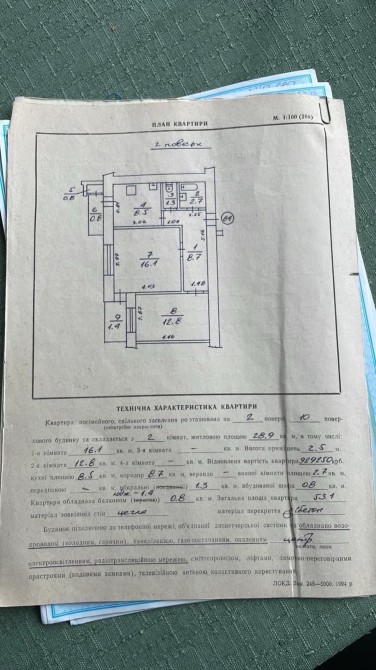 ПЛАН КВАРТИРИ
М. 1:100 (200)
2 поверх
5
0.8
6
0.8
4
8.5
3
1.3
2
2.7
84
1
8.7
7
16.1
9
1.4
8
12.8
ТЕХНІЧНА ХАРАКТЕРИСТИКА КВАРТИРИ
Квартира посімейного, спільного заселення розташована на 2 поверсі 10 повер-
хового будинку та складається з 2 кімнат, житловою площею 28,9 кв. м, в тому числі:
1-а кімната 16.1 кв. м, 3-я кімната – кв. м. Висота приміщень 2.5 м.
2-а кімната 12.8 кв. м, 4-а кімната – кв. м. Відновлена вартість квартири крб.
кухні площею 8.5 кв. м, коридор 8.7 кв. м, веранда – ванної кімнати площею 2.7 кв. м,
1.3 кв. м, вбудованої шафи 0.8 кв. м.
лодж – 1.4
Квартира обладнана балконом 0.8 кв. м. Загальна площа квартири 53.1
матеріал зовнішніх стін цегла матеріал перекриття з/бетон
Будинок підключено до телефонної мережі, об'єднаної диспетчерської системи та обладнано водо-
опаленням центр.
електроосвітленням, радіотрансляційною мережею, сміттєпроводом, ліфтами,
пристроями (кодовими замками), телевізійною антеною колективного користування.
1994 р.